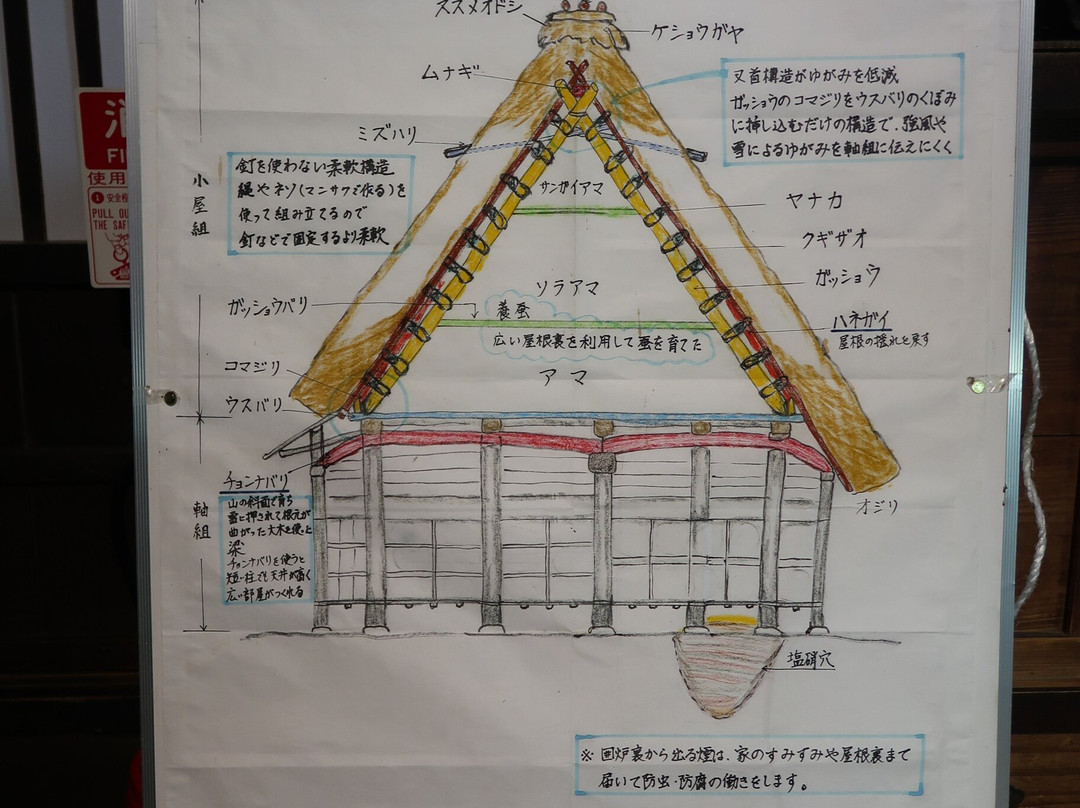 ススメオドシ
ケショウガヤ
ムナギ
又首構造がゆがみを低減
ガッショウのコマジリをウスバリのくぼみ
に挿し込むだけの構造で、強風や
雪によるゆがみを軸組に伝えにくく
ミズハリ
釘を使わない柔軟構造
縄やネソ(マンサクで作る)を
使って組み立てるので
釘などで固定するより柔軟
小屋組
サンガイアマ
ヤナカ
クギザオ
ガッショウ
ソラアマ
ガッショウバリ
養蚕
広い屋根裏を利用して蚕を育てた
ハネガイ
屋根の揺れを戻す
コマジリ
アマ
ウスバリ
チョンナバリ
山の斜面で育ち
雪に押されて根元が
曲がった大木を使った
梁
チョンナバリを使うと
短い柱でも天井が高く
広い部屋がつくれる
軸組
オジリ
塩硝穴
※囲炉裏から出る煙は、家のすみずみや屋根裏まで
届いて防虫・防腐の働きをします。
消
FI
使用
安全栓
PULL OU
THE SAF